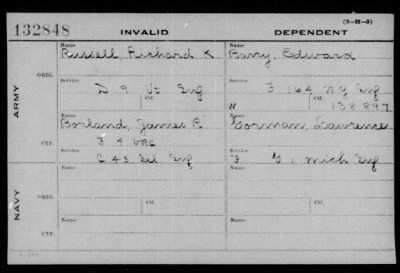 (3-H-5)
132848 INVALID DEPENDENT
Name Name
Russell, Richard K Barry, Edward
ORIG.
Service Service
D 9 Vt Eng F 164 NY Eng
CO. CO.
N 138897
ARMY
Name Name
Borland, James R Gorman, Lawrence
CTF.
Service Service
I 4 VRC
C 43 Eng F 9, Mich Eng
Name Name
ORIG.
Service Service
CO. CO.
NAVY
Name Name
CTF.